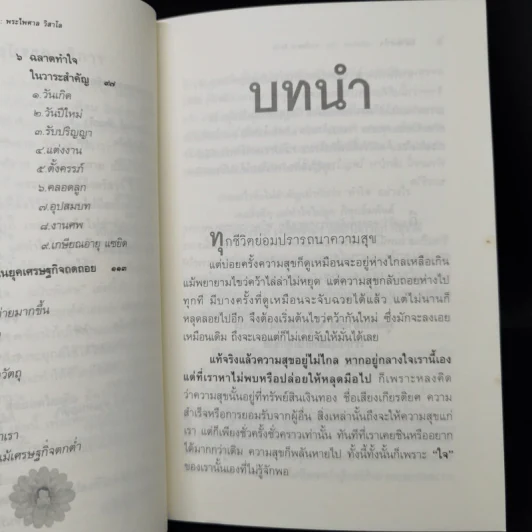 พระไพศาล วิสาโล
๖ ฉลาดทำใจ
ในวาระสำคัญ ๙๗
๑.วันเกิด
๒.วันปีใหม่
๓.รับปริญญา
๔.แต่งงาน
๕.ตั้งครรภ์
๖.คลอดลูก
๗.อุปสมบท
๘.งานศพ
๙.เกษียณอายุ แซยิด
นยุคเศรษฐกิจถดถอย ๑๑๓
่ายมากขึ้น
วัตถุ
เรา
ม้เศรษฐกิจตกต่ำ
บทนำ
ทุกชีวิตย่อมปรารถนาความสุข
แต่บ่อยครั้งความสุขก็ดูเหมือนจะอยู่ห่างไกลเหลือเกิน
แม้พยายามไขว่คว้าไล่ล่าไม่หยุด แต่ความสุขกลับถอยห่างไป
ทุกที มีบางครั้งที่ดูเหมือนจะจับฉวยได้แล้ว แต่ไม่นานก็
หลุดลอยไปอีก จึงต้องเริ่มต้นไขว่คว้ากันใหม่ ซึ่งมักจะลงเอย
เหมือนเดิม ถึงจะเจอแต่ก็ไม่เคยจับให้มั่นได้เลย
แท้จริงแล้วความสุขอยู่ไม่ไกล หากอยู่กลางใจเรานี้เอง
แต่ที่เราหาไม่พบหรือปล่อยให้หลุดมือไป ก็เพราะหลงคิด
ว่าความสุขนั้นอยู่ที่ทรัพย์สินเงินทอง ชื่อเสียงเกียรติยศ ความ
สำเร็จหรือการยอมรับจากผู้อื่น สิ่งเหล่านั้นถึงจะให้ความสุขแก่
เรา แต่ก็เพียงชั่วครั้งชั่วคราวเท่านั้น ทันทีที่เราเคยชินหรืออยาก
ได้มากกว่าเดิม ความสุขก็พลันหายไป ทั้งนี้ทั้งนั้นก็เพราะ “ใจ”
ของเรานั้นเองที่ไม่รู้จักพอ